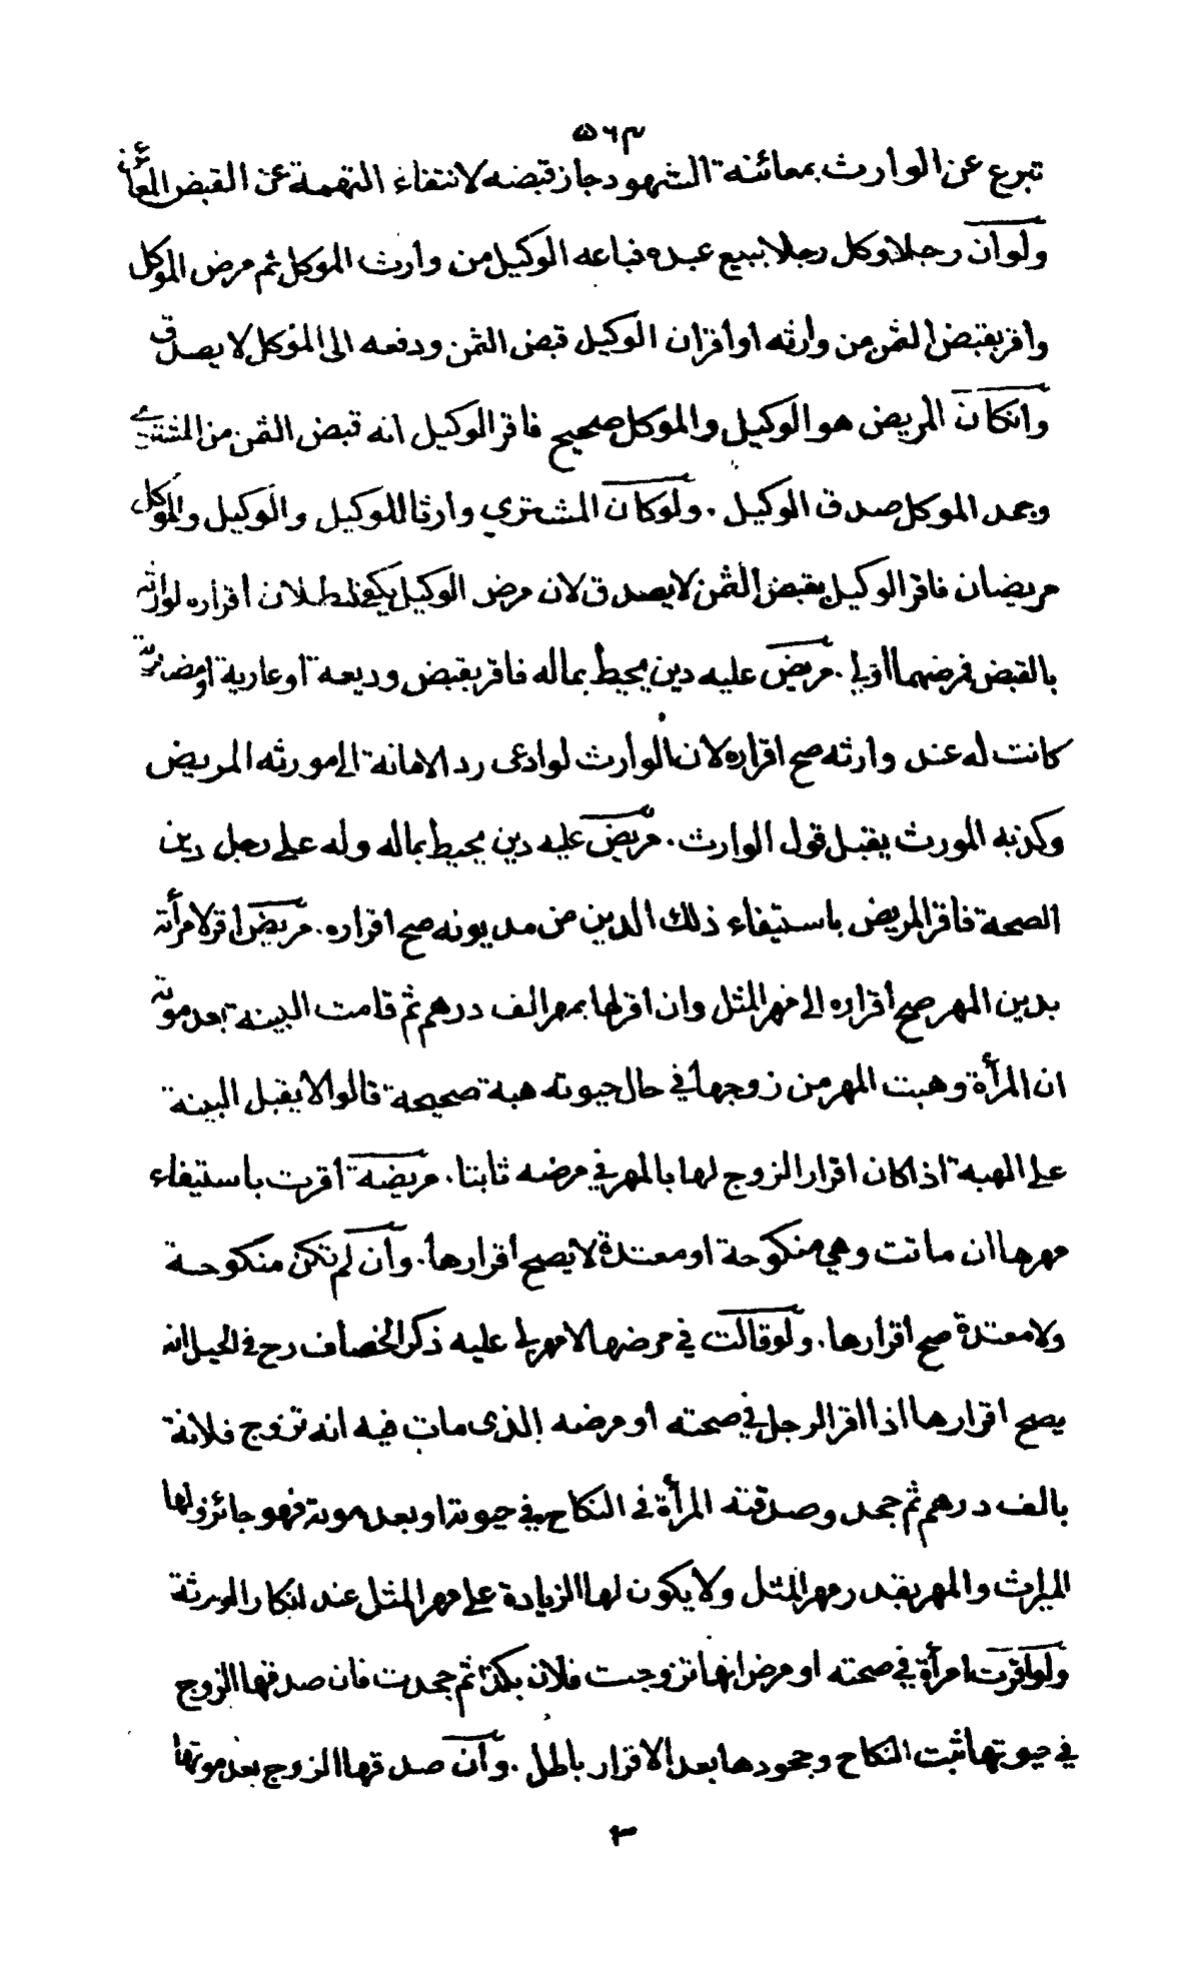 ۵۶۳
تبرع عن الوارث بمعائنة الشهود جاز قبضه لانتفاء التهمة عن القبض المعائن
ولوان رجلا وكل رجلا ببيع عبده فباعه الوكيل من وارث الموكل ثم مرض الموكل
واقر بقبض الثمن من وارثه او اقر ان الوكيل قبض الثمن ودفعه الى الموكل لا يصدق
وانكان المريض هو الوكيل والموكل صحيح فاقر الوكيل انه قبض الثمن من المشتري
وجحد الموكل صدق الوكيل . ولوكان المشتري وارثا للوكيل والوكيل والموكل
مريضان فاقر الوكيل بقبض الثمن لا يصدق لان مرض الوكيل يكفي لبطلان اقراره لوارثه
بالقبض فمرضهما اولى . مريض عليه دين يحيط بماله فاقر بقبض وديعة او عارية او مضاربة
كانت له عند وارثه صح اقراره لان الوارث لو ادعى رد الامانة الى مورثه المريض
وكذبه المورث يقبل قول الوارث . مريض عليه دين يحيط بماله وله على رجل دين
الصحة فاقر المريض باستيفاء ذلك الدين من مديونه صح اقراره . مريض اقر لامرأته
بدين المهر صح اقراره الى مهر المثل وان اقر لها بمهر الف درهم ثم قامت البينة بعد موته
ان المرأة وهبت المهر من زوجها في حال حيوته هبة صحيحة قالوا لا يقبل البينة
على الهبة اذا كان اقرار الزوج لها بالمهر في مرضه ثابتا . مريضة اقرت باستيفاء
مهرها ان ماتت وهي منكوحة او معتدة لا يصح اقرارها . وان لم تكن منكوحة
ولا معتدة صح اقرارها . ولو قالت في مرضها لا مهر لي عليه ذكر الخصاف رح في الحيل انه
يصح اقرارها اذا اقر الرجل في صحته او مرضه الذى مات فيه انه تزوج فلانة
بالف درهم ثم جحد وصدقته المرأة في النكاح في حيوته او بعد موته فهو جائز ولها
الميراث والمهر بقدر مهر المثل ولا يكون لها الزيادة على مهر المثل عند انكار الورثة
ولو اقرت امرأة في صحته او مرض انها تزوجت فلان بكذا ثم جحدت فان صدقها الزوج
في حيوتها ثبت النكاح وجحودها بعد الاقرار باطل . وان صدقها الزوج بعد موتها